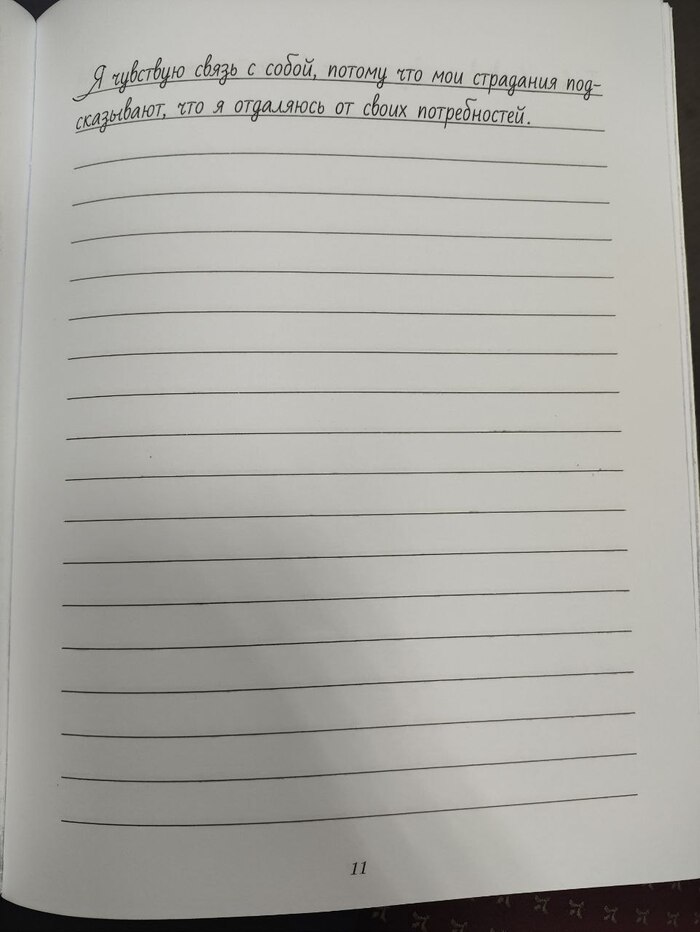 Я чувствую связь с собой, потому что мои страдания под-
сказывают, что я отдаляюсь от своих потребностей.
11